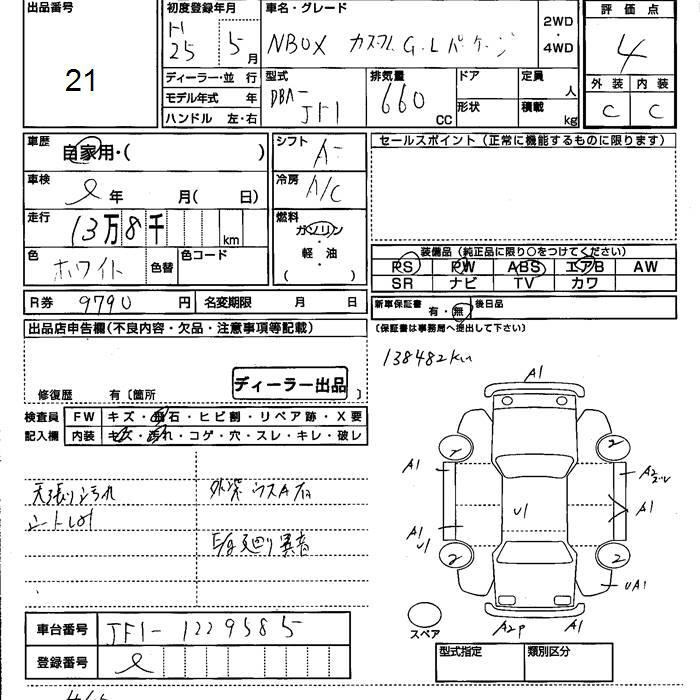 出品番号
21
初度登録年月
H
25 5 月
車名・グレード
NBOX カスタム G・Lパッケージ
2WD
・
4WD
評価点
4
外装 内装
C C
ディーラー・並 行
モデル年式 年
ハンドル 左・右
型式
DBA-
JF1
排気量
660
CC
ドア
形状
定員
人
積載
kg
車歴
自家用・( )
シフト
A-
車検
年 月( 日)
冷房
A/C
走行
13万8千 km
燃料
ガソリン
・
軽油
( )
色
ホワイト
色替
色コード
セールスポイント(正常に機能するものに限ります)
装備品(純正品に限り○をつけてください)
PS PW ABS エアB AW
SR ナビ TV カワ
R券 9790 円 名変期限 月 日
新車保証書
有・無
後日品
(保証書は事務局へ提出して下さい)
出品店申告欄(不良内容・欠品・注意事項等記載)
修復歴 有〔箇所 〕
ディーラー出品
検査員 FW キズ・飛石・ヒビ割・リペア跡・X要
記入欄 内装 キズ・汚れ・コゲ・穴・スレ・キレ・破レ
138482km
A1
2 2
A1
A2
A1
U1
A1
U1
2 2
UA1
A2P A1
スペア
天張り汚れ
外装 ウスA有
異音
車台番号 JF1-1229585
登録番号
型式指定 類別区分